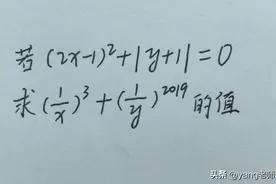 若 (2x-1)²+|y+1|=0
求 (1/x)³+(1/y)²⁰¹⁹ 的值
头条 @yang老师